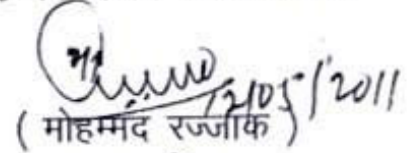 12/05/2011
( मोहम्मद रज्जाक )